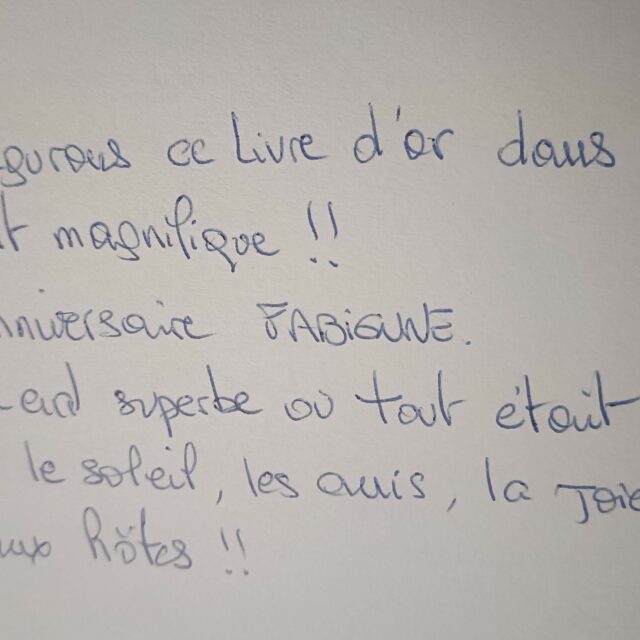 gurons ce Livre d'or dans
t magnifique !!
nniversaire FABIENNE.
-end superbe où tout était
le soleil, les amis, la Joie
aux hôtes !!